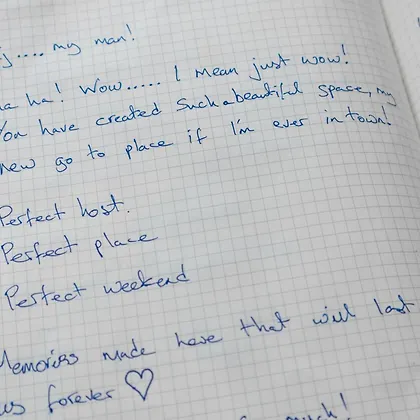 .... my man!
ha ha! Wow..... I mean just wow!
You have created such a beautiful space, my
new go to place if I'm ever in town!
Perfect host.
Perfect place
Perfect weekend
Memories made here that will last
us forever ♡
much!